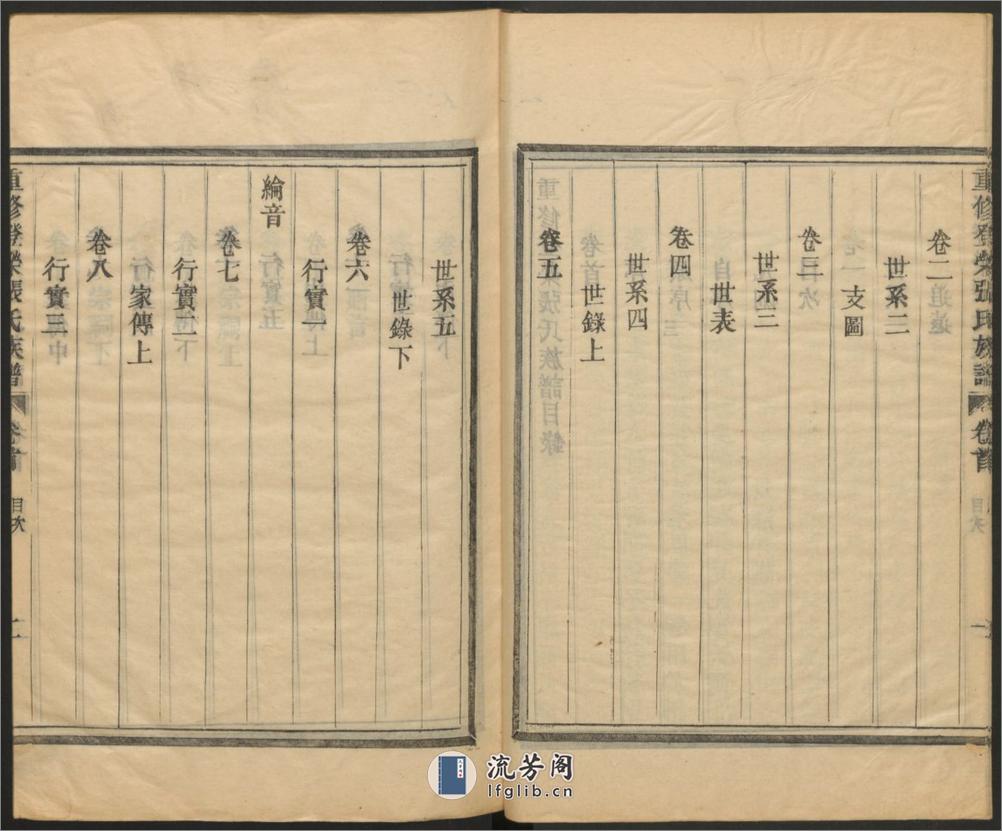 重修登榮張氏族譜 卷首 目次 一
卷二
世系二
支圖
卷三
世系三
世表
卷四
世系四
世錄上
卷五
世系五
世錄下
卷六
行實一
綸音
卷七
行實二
家傳上
卷八
行實三
重修登榮張氏族譜 卷首 目次 二
流芳阁
lfglib.cn